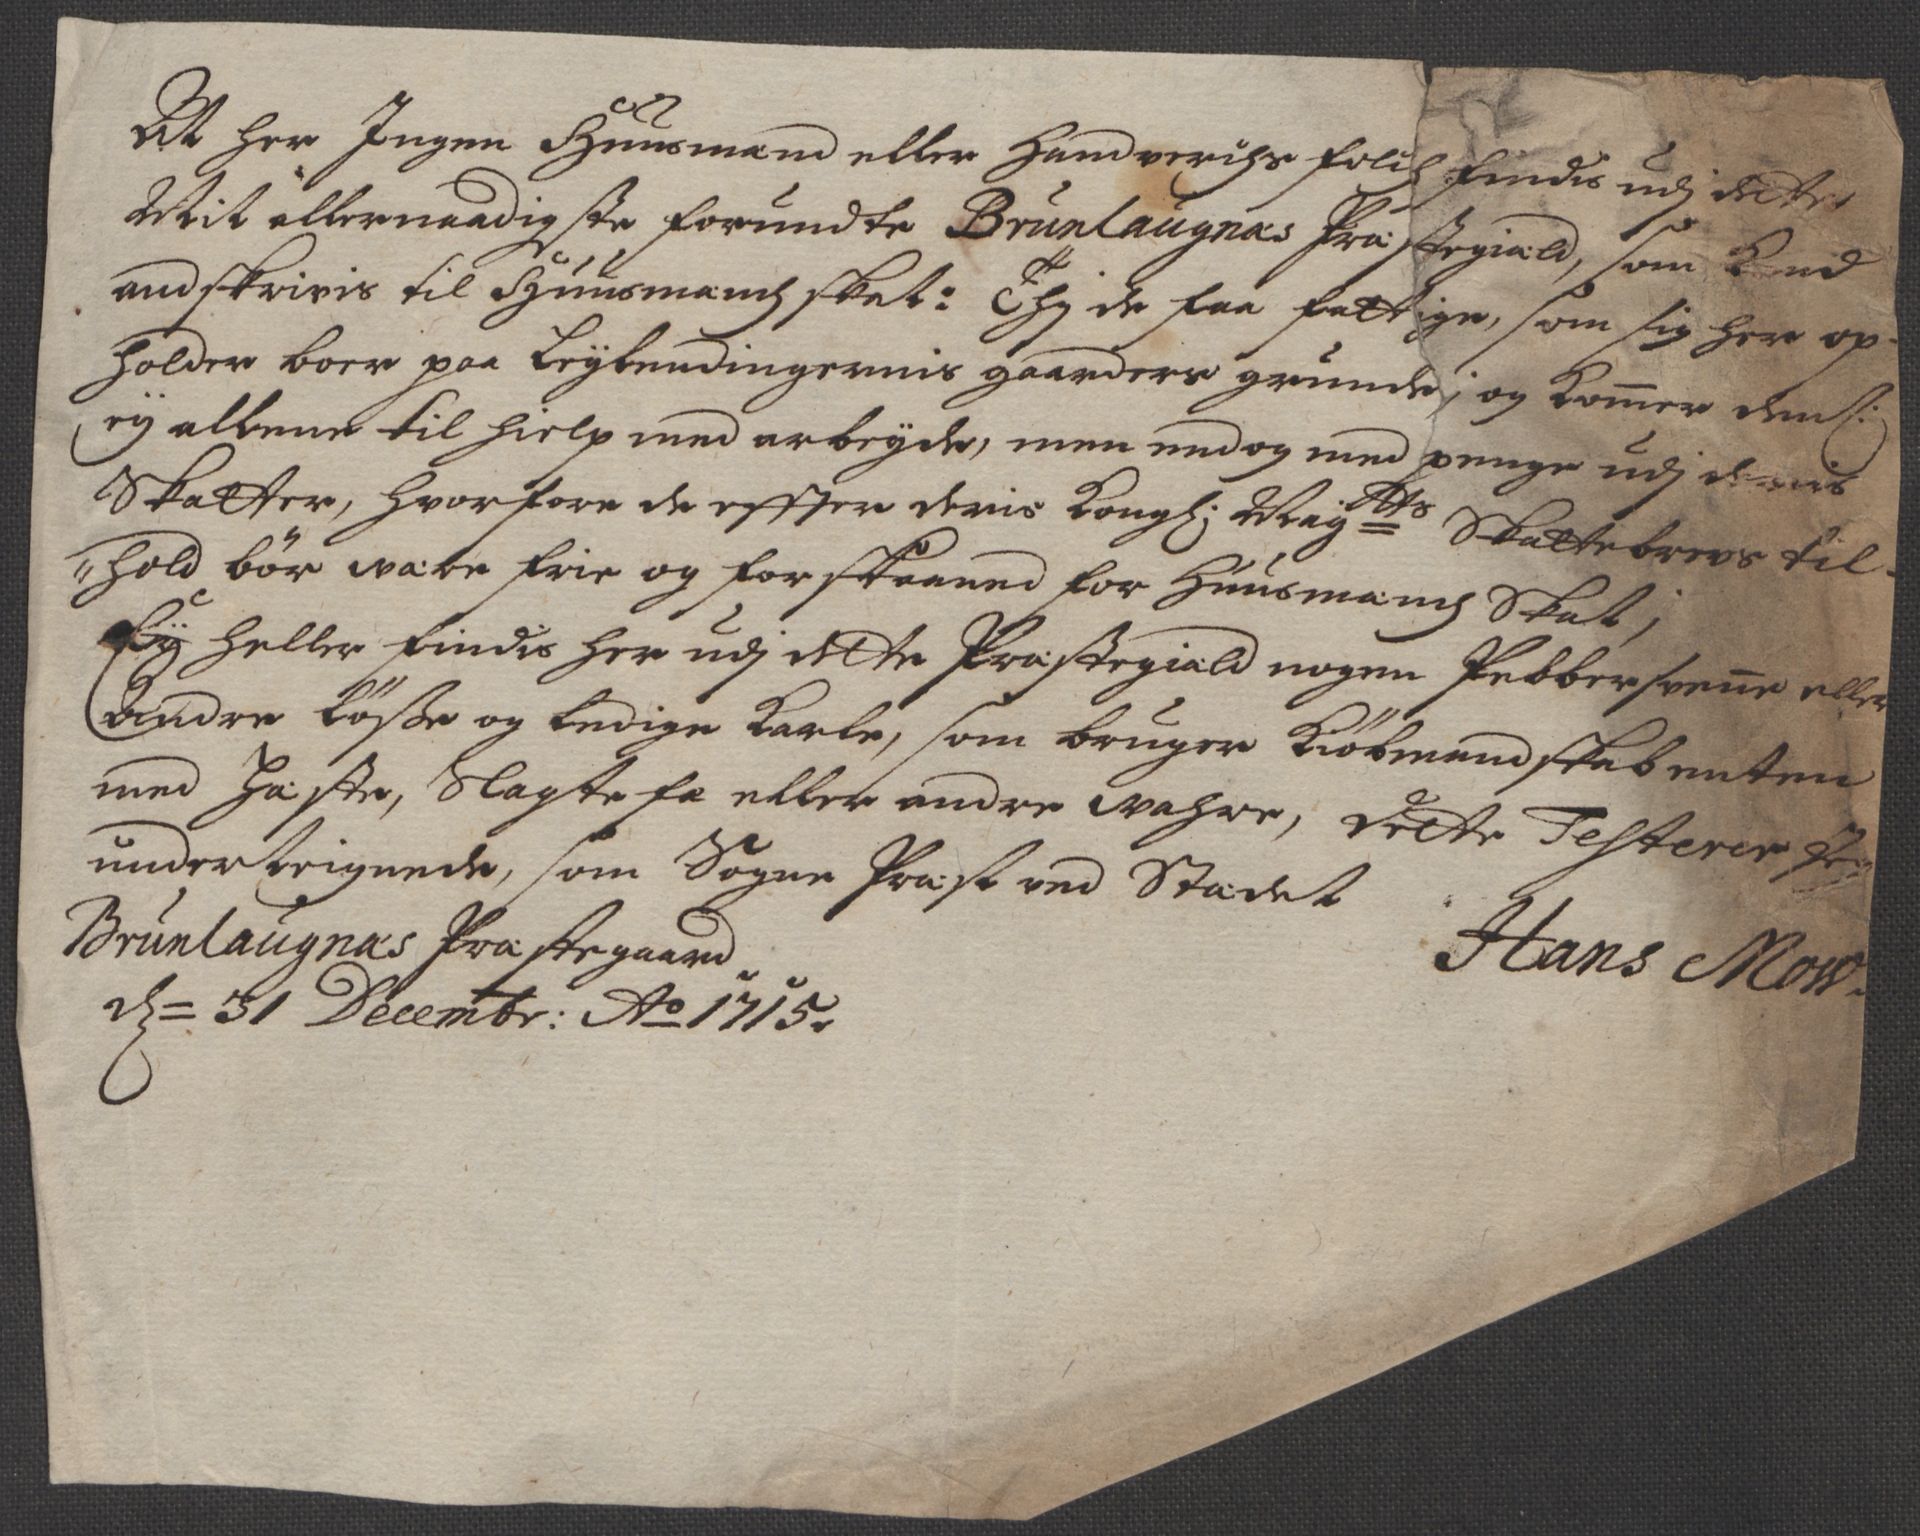 At her Ingen Huusmænd eller Handverchs folch findis udj dette
Mit allernaadigste forundte Brunlaugnæs Præstegiæld, som Kand
andskrivis til Huusmands skat: Thj de faa fattige, som sig her op-
holder boer paa Leylændingernis gaarders grunde, og kom̅er dem
ey allene til hielp med arbeyde, men endog med penge udj deris
Skatter, hvorfore de effter deris Kongl: May:tts Skattebrevs til-
hold bör være frie og forskaaned for Huusmands Skat;
Ey heller findis her udj dette Præstegiæld nogen Pebbersven̅e eller
Andre löse og ledige Karle, som bruger Kiöbmandskab enten
med Hæste, Slagte fæ eller andre vahre, dette Testerer
underteignede, som Sogne Præst ved Stædet
Brunlaugnæs Præstegaard
d = 31 Decembr: Ao 1715.
Hans Mow